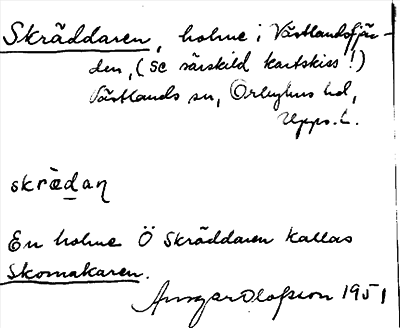 Skräddaren, holme i Västlandsfjär-
den, (se särskild kartskiss!)
Västlands sn, Örbyhus hd,
Upps. l.
skrèdaɳ
En holme Ö Skräddaren kallas
Skomakaren.
Ansgar Olofsson 1951